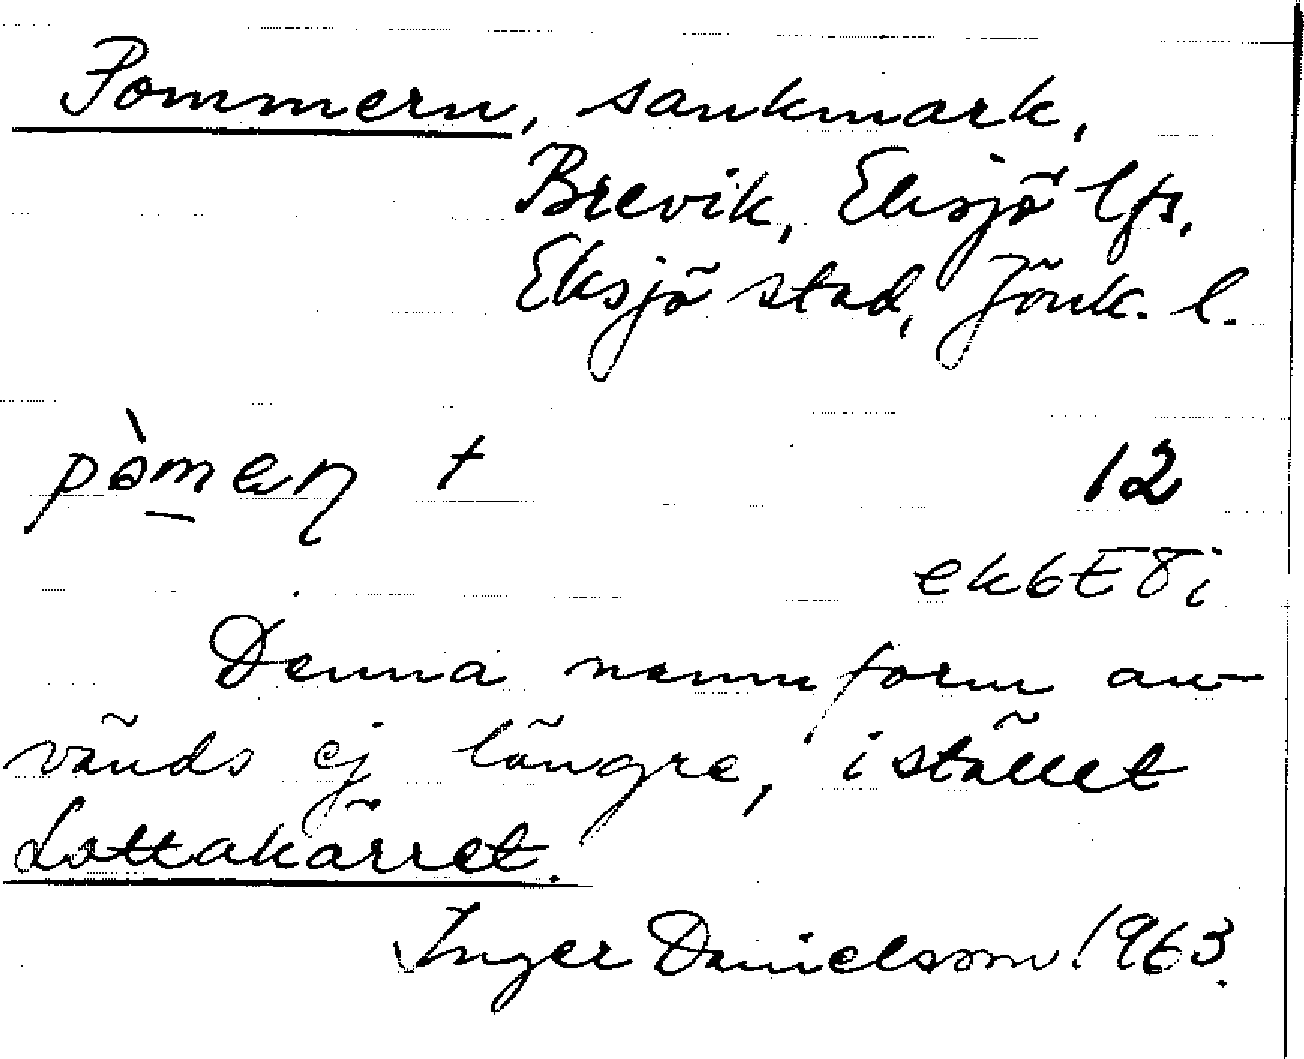 Pommern, sankmark,
Brevik, Eksjö lfs.
Eksjö stad, Jönk. l.
pòmeɳ † 12
ek6E8i
Denna namnform an-
vänds ej längre, istället
Lottakärret.
Inger Danielsson 1963.